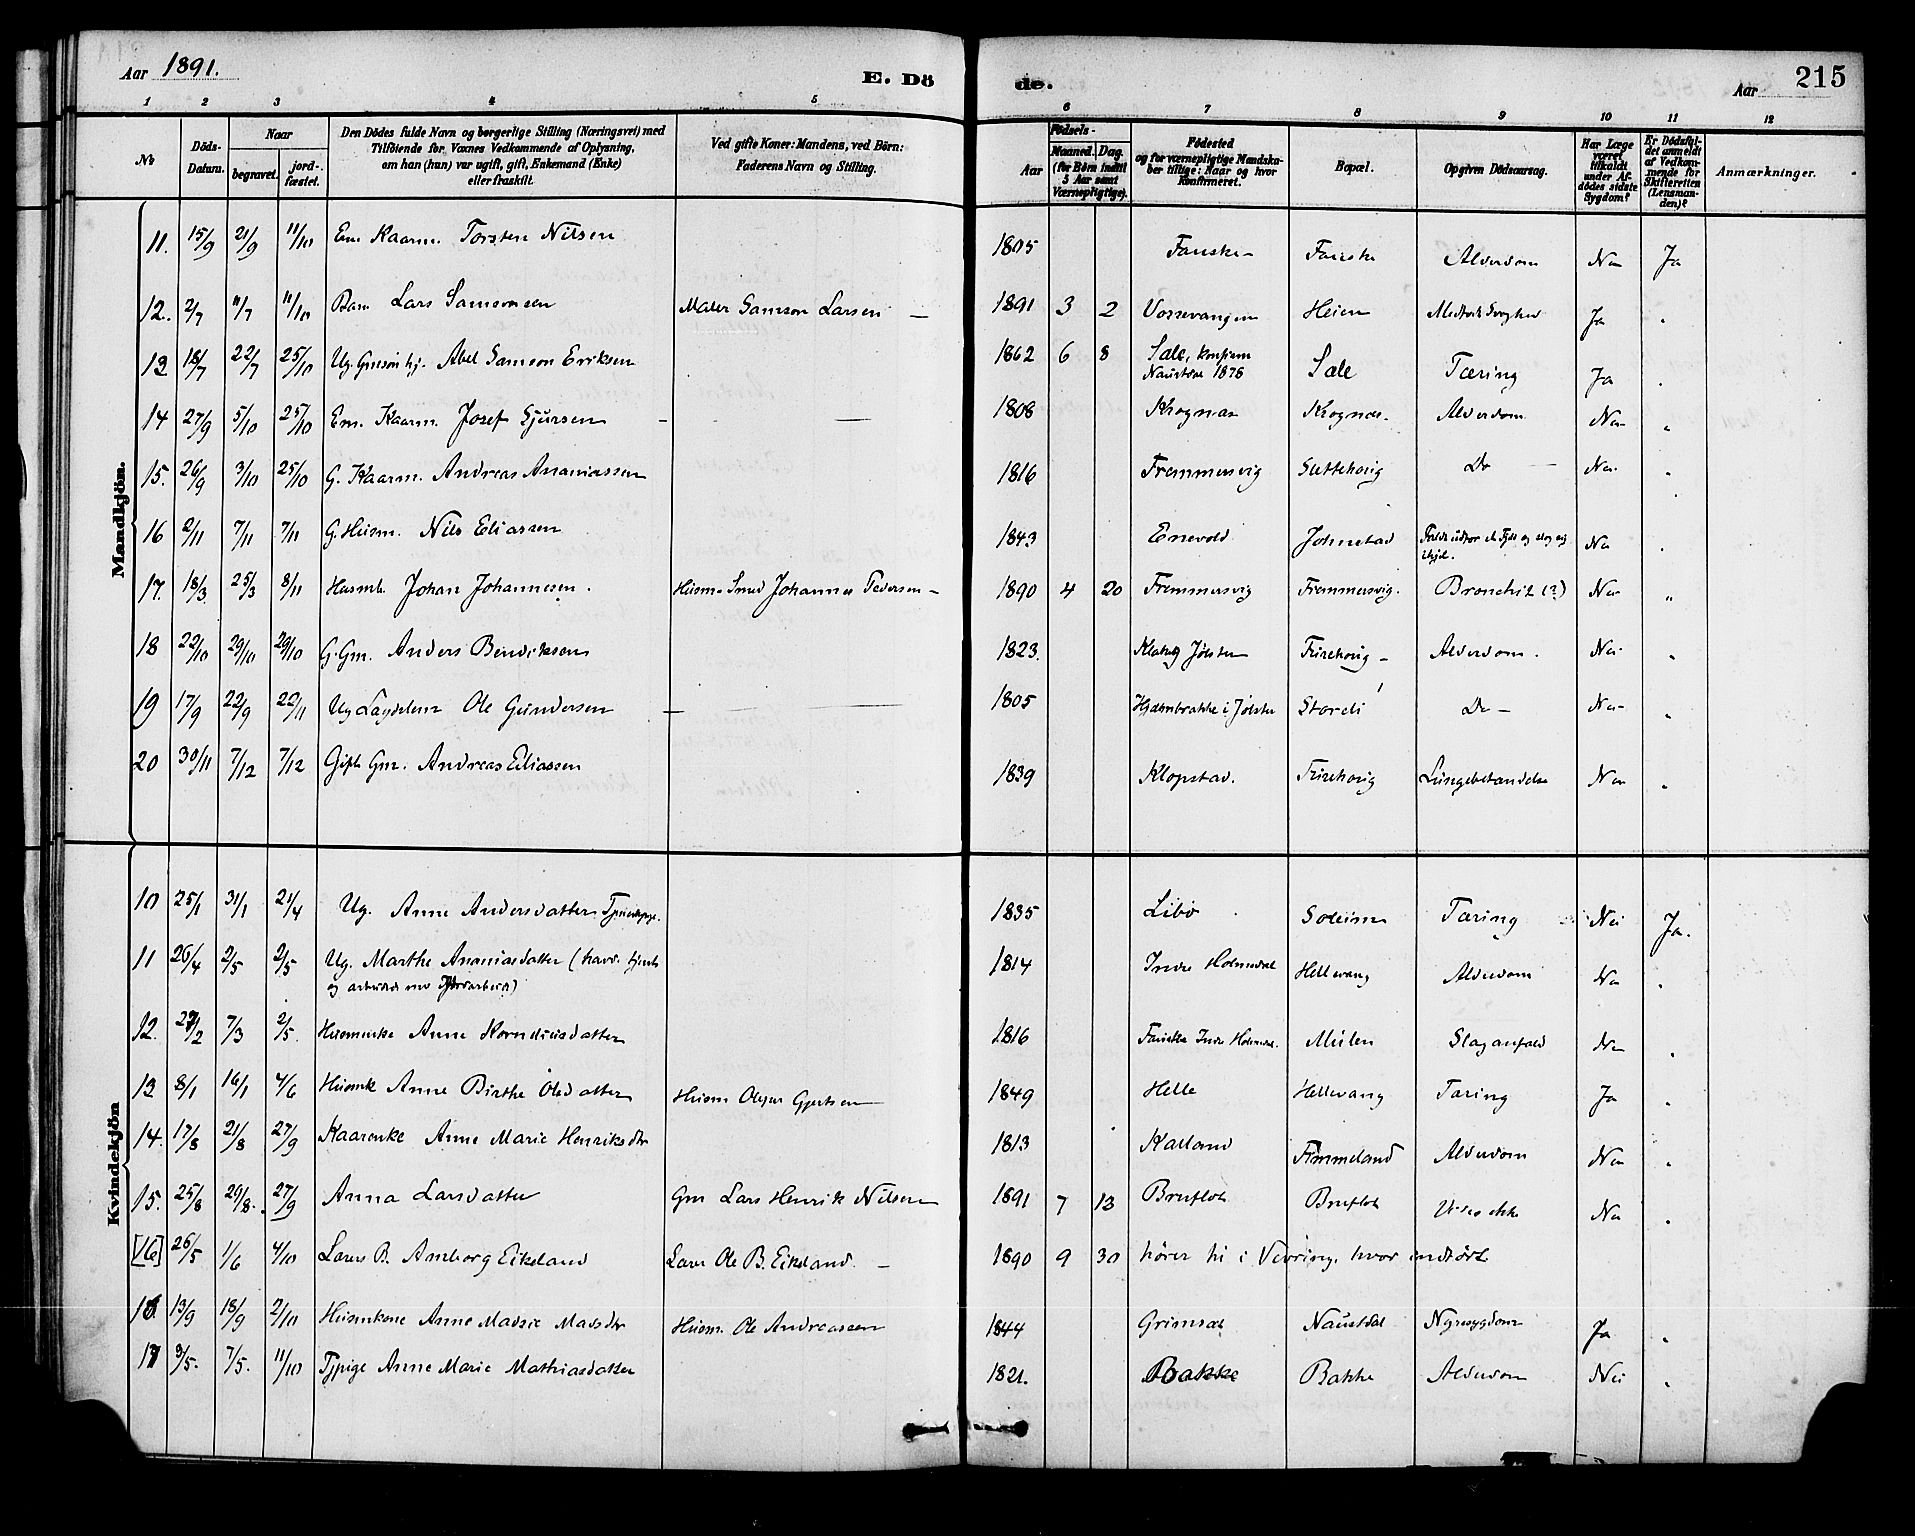 Aar 1891.
E. Dö
de.
Aar
215
1 2 3 4 5 6 7 8 9 10 11 12
No
Döds-Datum.
Naar
begravet.
jord-fæstet.
Den Dödes fulde Navn og borgerlige Stilling (Næringsvei) med
Tilföiende for Voxnes Vedkommende af Oplysning,
om han (hun) var ugift, gift, Enkemand (Enke)
eller fraskilt.
Ved gifte Koner: Mandens, ved Börn:
Faderens Navn og Stilling.
Födsels-
Aar
Maaned.
Dag.
(for Börn indtil
5 Aar samt
Værnepligtige).
Födested
og for værnepligtige Mandska-
ber tillige: Naar og hvor
konfirmeret.
Bopæl.
Opgiven Dödsaarsag.
Har Læge
været
tilkaldt
under Af-
dödes sidste
Sygdom?
Er Dödsfal-
det anmeldt
af Vedkom-
mende for
Skifteretten
(Lensman-
den)?
Anmærkninger.
Mandkjön.
11. 15/9 21/9 11/10 Em Kaarm. Torsten Nilsen 1805 Fauske Fauske Alderdom Nei Ja
12. 2/7 11/7 11/10 Barn Lars Samsonsen Maler Samson Larsen — 1891 3 2 Vossevangen Heien Medfødt Svaghed Ja "
13 18/7 22/7 25/10 Ug. Abel Samson Eriksen 1862 6 8 Sæle, konfirm Naustdal 1876 Sæle Tæring Ja "
14 27/9 5/10 25/10 Em. Kaarm. Josef Sjursen — 1808 Krognæs Krognæs. Alderdom Nei "
15. 26/9 3/10 25/10 G. Kaarm. Andreas Ananiassen 1816 Fremmersvig Do — Nei "
16 2/11 7/11 7/11 G. Husm. Nils Eliassen 1843 Enevold Johnstad ihjel. Nei "
17. 18/3. 25/3 8/11 Husmb. Johan Johannesen. Husm. Smed Johannes Pedersen — 1890 4 20 Fremmersvig Fremmersvig. Bronchit (?) Nei "
18 22/10 29/10 29/10 G. Gm. Anders Bendiksen 1823. Jølster Furehovig — Alderdom. Nei "
19 17/9 22/9 22/11 Ug Lægdslem Ole Gundersen — 1805 i Jølster Do — Nei "
20 30/11 7/12 7/12 Gift Gm. Andreas Eliassen 1839 Klopstad. Furehovig Lungebetændelse Nei "
Kvindekjön
10 25/1 31/1 21/4 Ug. Anne Andersdatter 1835 Libø Soleim Tæring Nei Ja.
11 26/4 2/5 2/5 Ug. Marthe Ananiasdatter (havde tjent 1814 Indre Holmedal Hellevang Alderdom Nei "
og arbeidet med Jordarbeid)
12. 27/2 7/3 2/5. Husmenke Anne Korneliusdatter 1816 Fauske Indre Holmedal. Mulen Slaganfald Nei "
13 8/1 16/1 4/6 Husmk Anne Birthe Olsdatter Husm Gjertsen 1849 Helle Hellevang Tæring Ja "
14. 17/8 21/8 27/9 Kaarenke Anne Marie Henriksdtr 1813 Kalland Fimmeland Alderdom Nei "
15. 25/8 29/8. 27/9 Anna Larsdatter Gm Lars Henrik Nilsen 1891 7 13 Brufløt Brufløt Vides ikke Nei "
[16] 26/5 1/6 4/10 B. Amborg Eikeland Ole B. Eikeland. — 1890 9 30 hører til i Vevring, hvor indført
16. 13/9 18/9 2/10 Husmkone Anne Madsdtr Husm. Ole Andreassen 1844 Grimset Naustdal Nyresygdom Ja "
17 3/5. 7/5. 11/10 Tjpige Anne Marie Mathiasdatter 1821. Bakke Bakke Alderdom Nei "